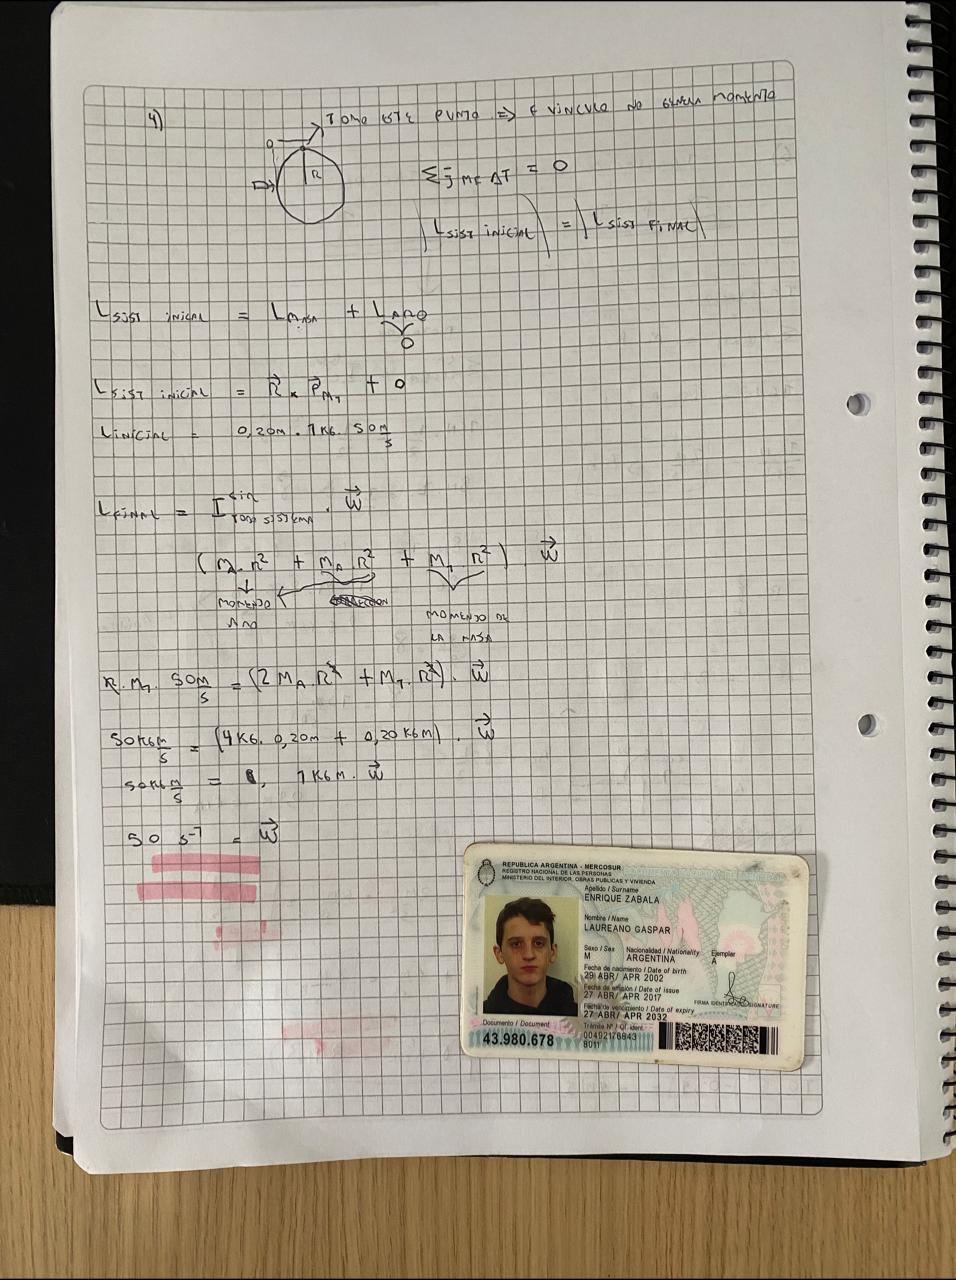 4)
TOMO ESTE PUNTO => F VINCULO NO GENERA MOMENTO
O
R
Σ J MF ΔT = 0
|L SIST INICIAL| = |L SIST FINAL|
L SIST INICIAL = L MASA + L ARO
0
L SIST INICIAL = R x P M1 + 0
L INICIAL = 0,20m . 1KG . 50 m/s
L FINAL = I TODO SISTEMA . W
(MA R² + MA R² + M1 R²) W
MOMENTO
ARO
MOMENTO DE
LA MASA
R. M1. 50 m/s = (2 MA . R² + M1 . R²) . W
50 KG m/s = (4KG. 0,20m + 0,20KGm) . W
50KG m/s = 1KGm . W
50 s⁻¹ = W
REPUBLICA ARGENTINA - MERCOSUR
REGISTRO NACIONAL DE LAS PERSONAS
MINISTERIO DEL INTERIOR, OBRAS PUBLICAS Y VIVIENDA
Apellido / Surname
ENRIQUE ZABALA
Nombre / Name
LAUREANO GASPAR
Sexo / Sex Nacionalidad / Nationality Ejemplar
M ARGENTINA A
Fecha de nacimiento / Date of birth
29 ABR/ APR 2002
Fecha de emisión / Date of issue
27 ABR/ APR 2017
Fecha de vencimiento / Date of expiry
27 ABR/ APR 2032
FIRMA IDENTIFICADO / SIGNATURE
Documento / Document
43.980.678
Trámite Nº / Of. ident.
00492176843
8011